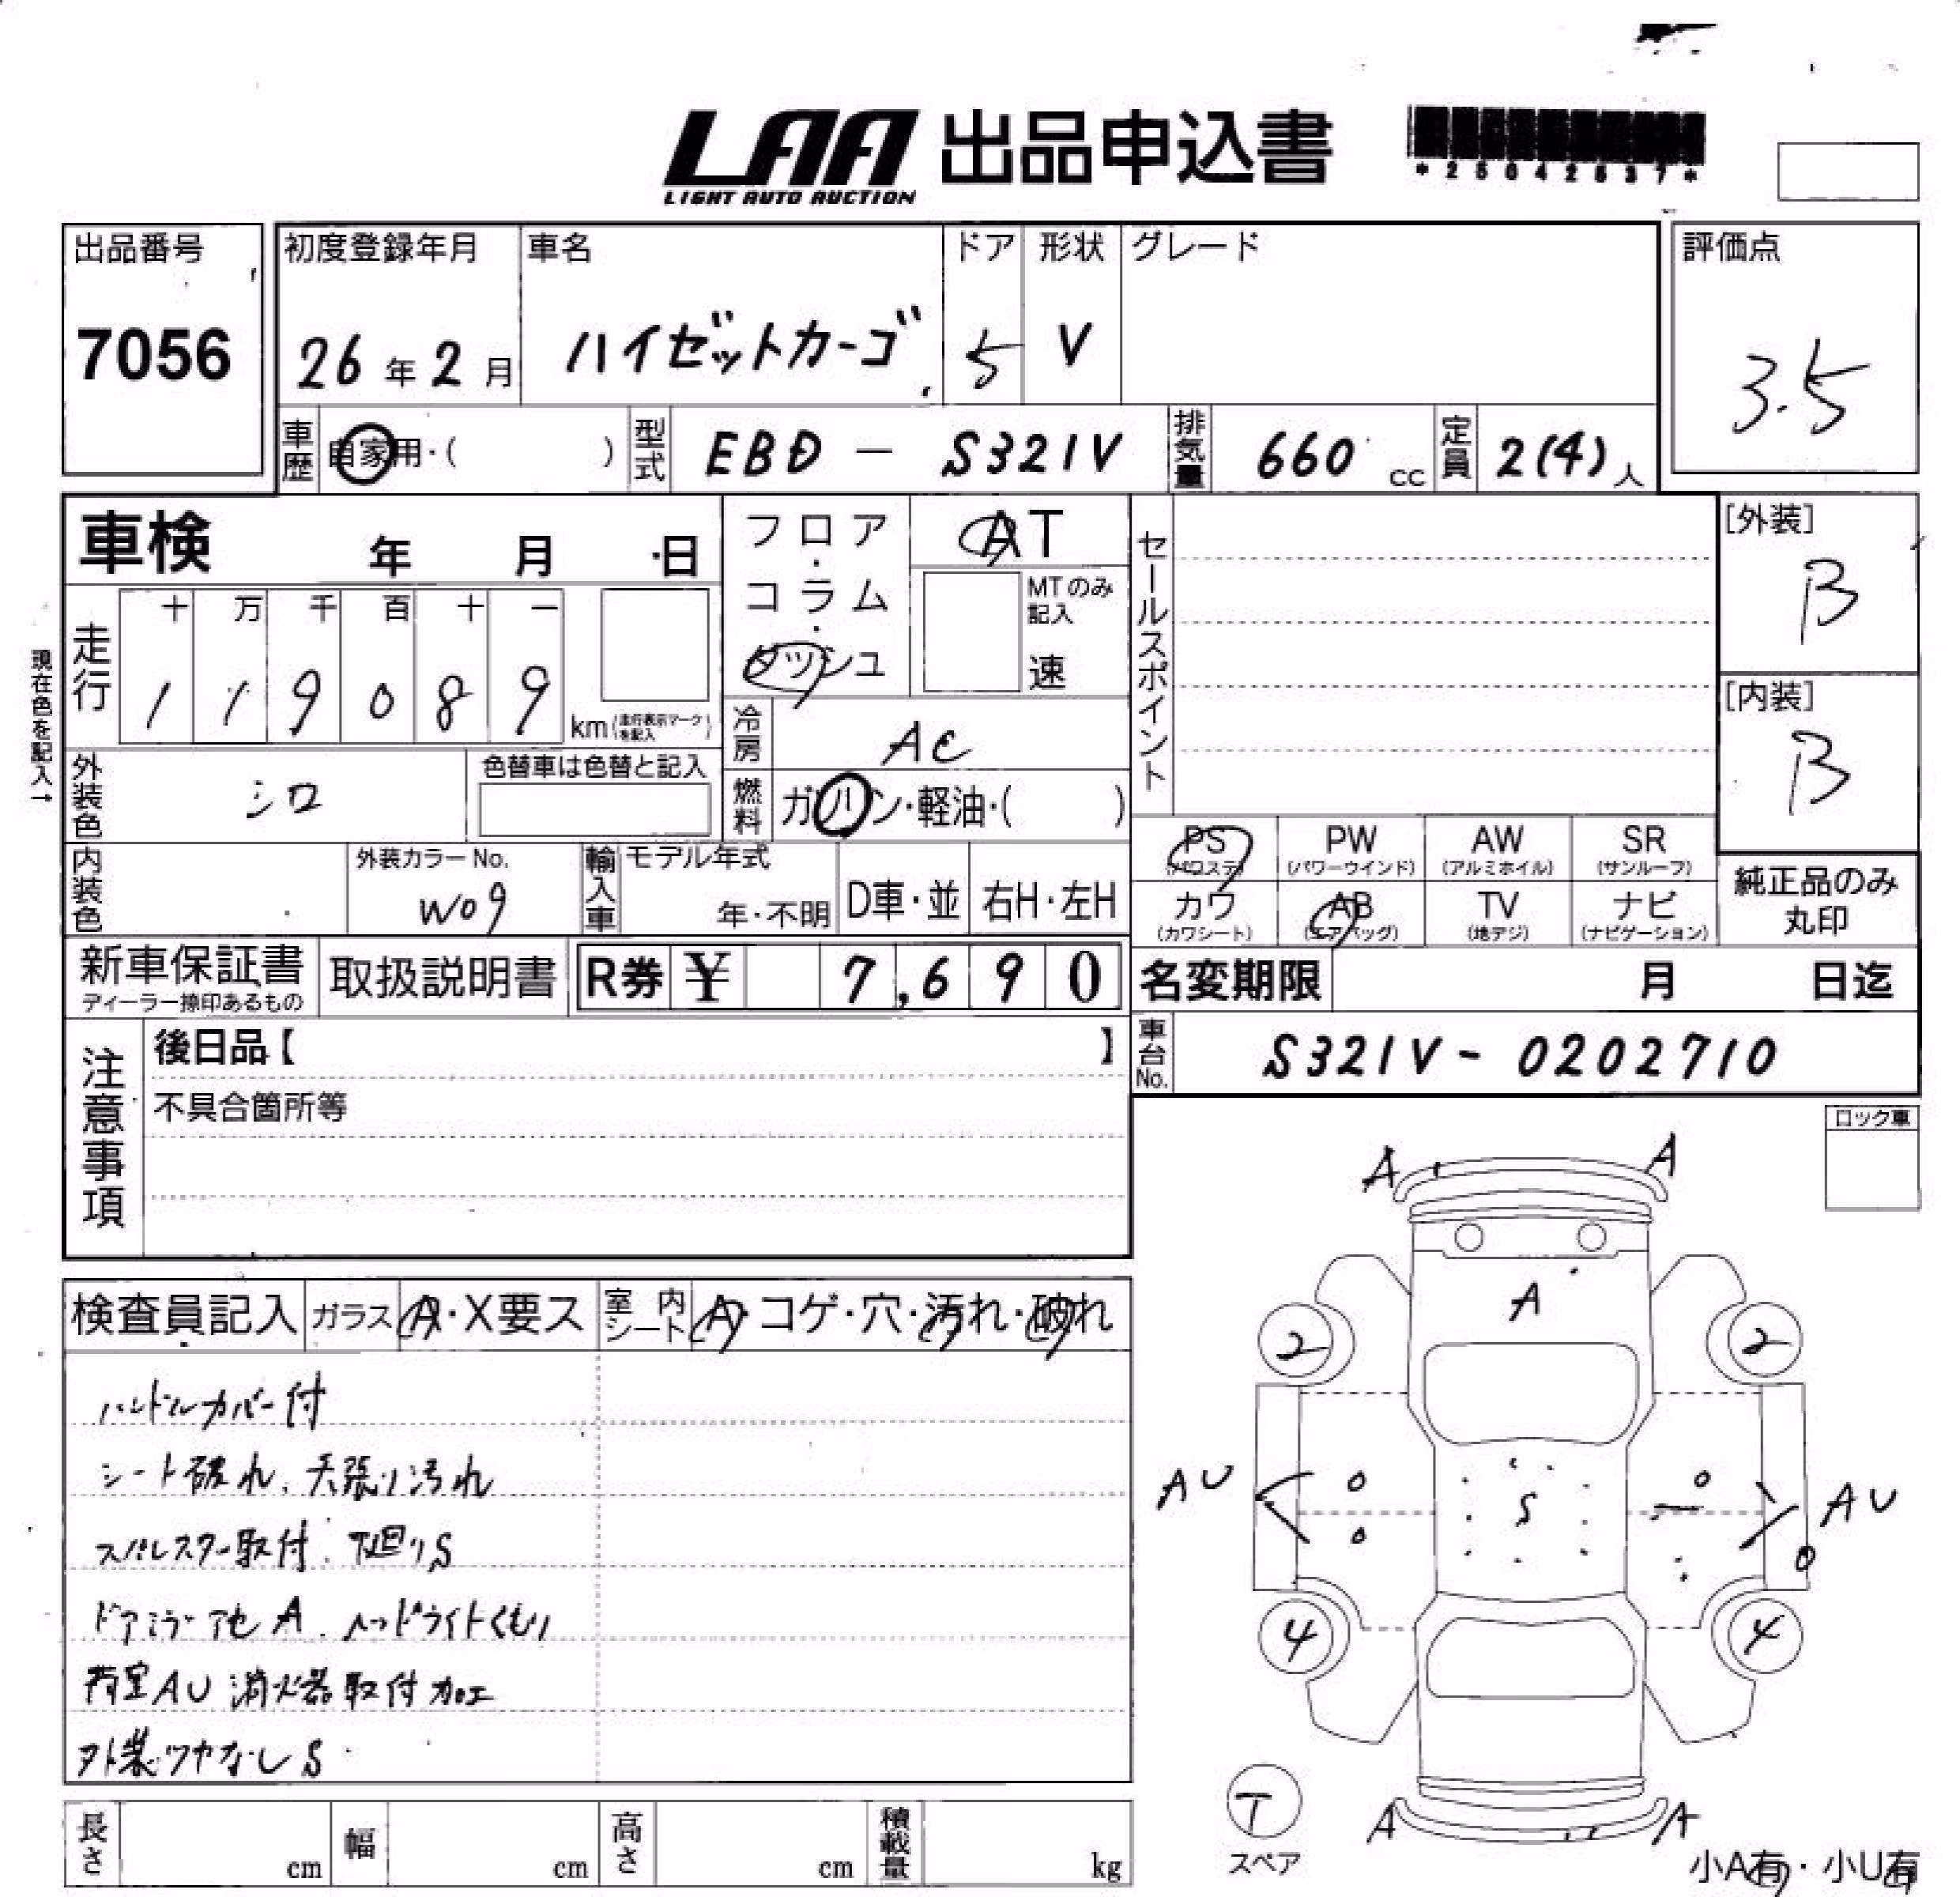 LAA 出品申込書
LIGHT AUTO AUCTION
出品番号
7056
初度登録年月
26年2月
車名
ハイゼットカーゴ
ドア
5
形状
V
グレード
評価点
3.5
車歴
自家用・( )
型式
EBD - S321V
排気量
660 cc
定員
2(4)人
車検 年 月 日
フロア・コラム・ダッシュ
AT
MTのみ記入
速
セールスポイント
[外装]
B
[内装]
B
現在色を記入→
走行
十 万 千 百 十 一
1 1 9 0 8 9 km(走行表示マークを記入)
冷房
AC
外装色
シロ
色替車は色替と記入
燃料
ガソリン・軽油・( )
PS (パワステ)
PW (パワーウインド)
AW (アルミホイル)
SR (サンルーフ)
カワ (カワシート)
AB (エアバッグ)
TV (地デジ)
ナビ (ナビゲーション)
純正品のみ丸印
内装色
外装カラーNo.
W09
輸入車
モデル年式
年・不明
D車・並
右H・左H
新車保証書
ディーラー捺印あるもの
取扱説明書
R券 ¥ 7,690
名変期限 月 日迄
車台No.
S321V-0202710
注意事項
後日品【 】
不具合箇所等
ロック車
検査員記入
ガラス A・X要ス
室内シート A・コゲ・穴・汚れ・破れ
ハンドルカバー付
シート破れ、天張り汚れ
取付 下廻りS
ドアミラー A ヘッドライトくもり
荷室AU 消火器取付加工
外装ツヤなしS
A A
A
2 2
AU S AU
4 4
T
スペア
A A
小A有・小U有
長さ cm
幅 cm
高さ cm
積載量 kg